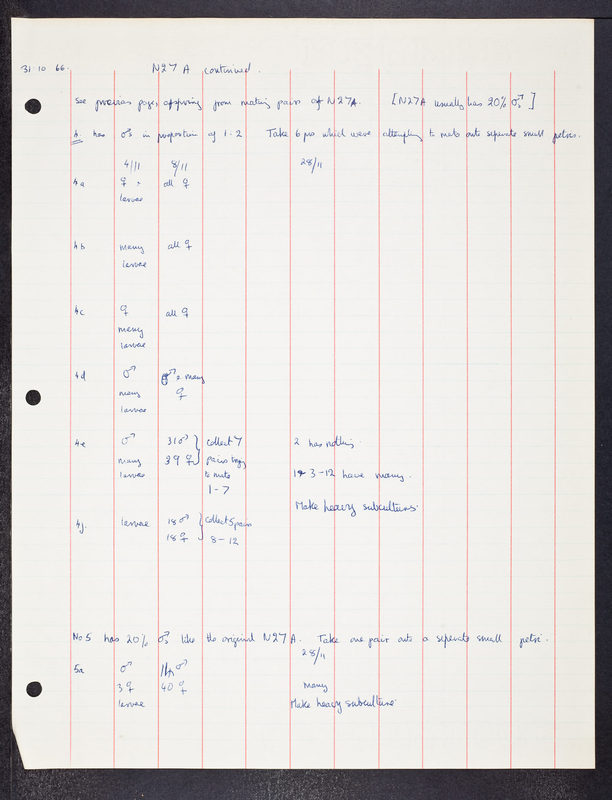 31 10 66. N27 A continued.
See previous page, offspring from mating pairs of N27A. [N27A usually has 20% ♂s]
4. has ♂s in proportion of 1-2 Take 6 prs which were attempting to mate onto separate small petris.
4/11 8/11 28/11
4a ♀ all ♀
larvae
4b many all ♀
larvae
4c ♀ all ♀
many
larvae
4d ♂ ♂ & many
many ♀
larvae
4e ♂ 31♂ } collect 7 2 has nothing.
many 39♀ pairs trying 1 & 3-12 have many.
larvae to mate
1-7
Make heavy subcultures.
4f. larvae 18♂ } collect 5 pairs
18♀ 8-12
No 5 has 20% ♂s like the original N27A. Take one pair onto a seperate small petri.
28/11
5a ♂ ♂
3♀ 40♀ Many
larvae Make heavy subculture.